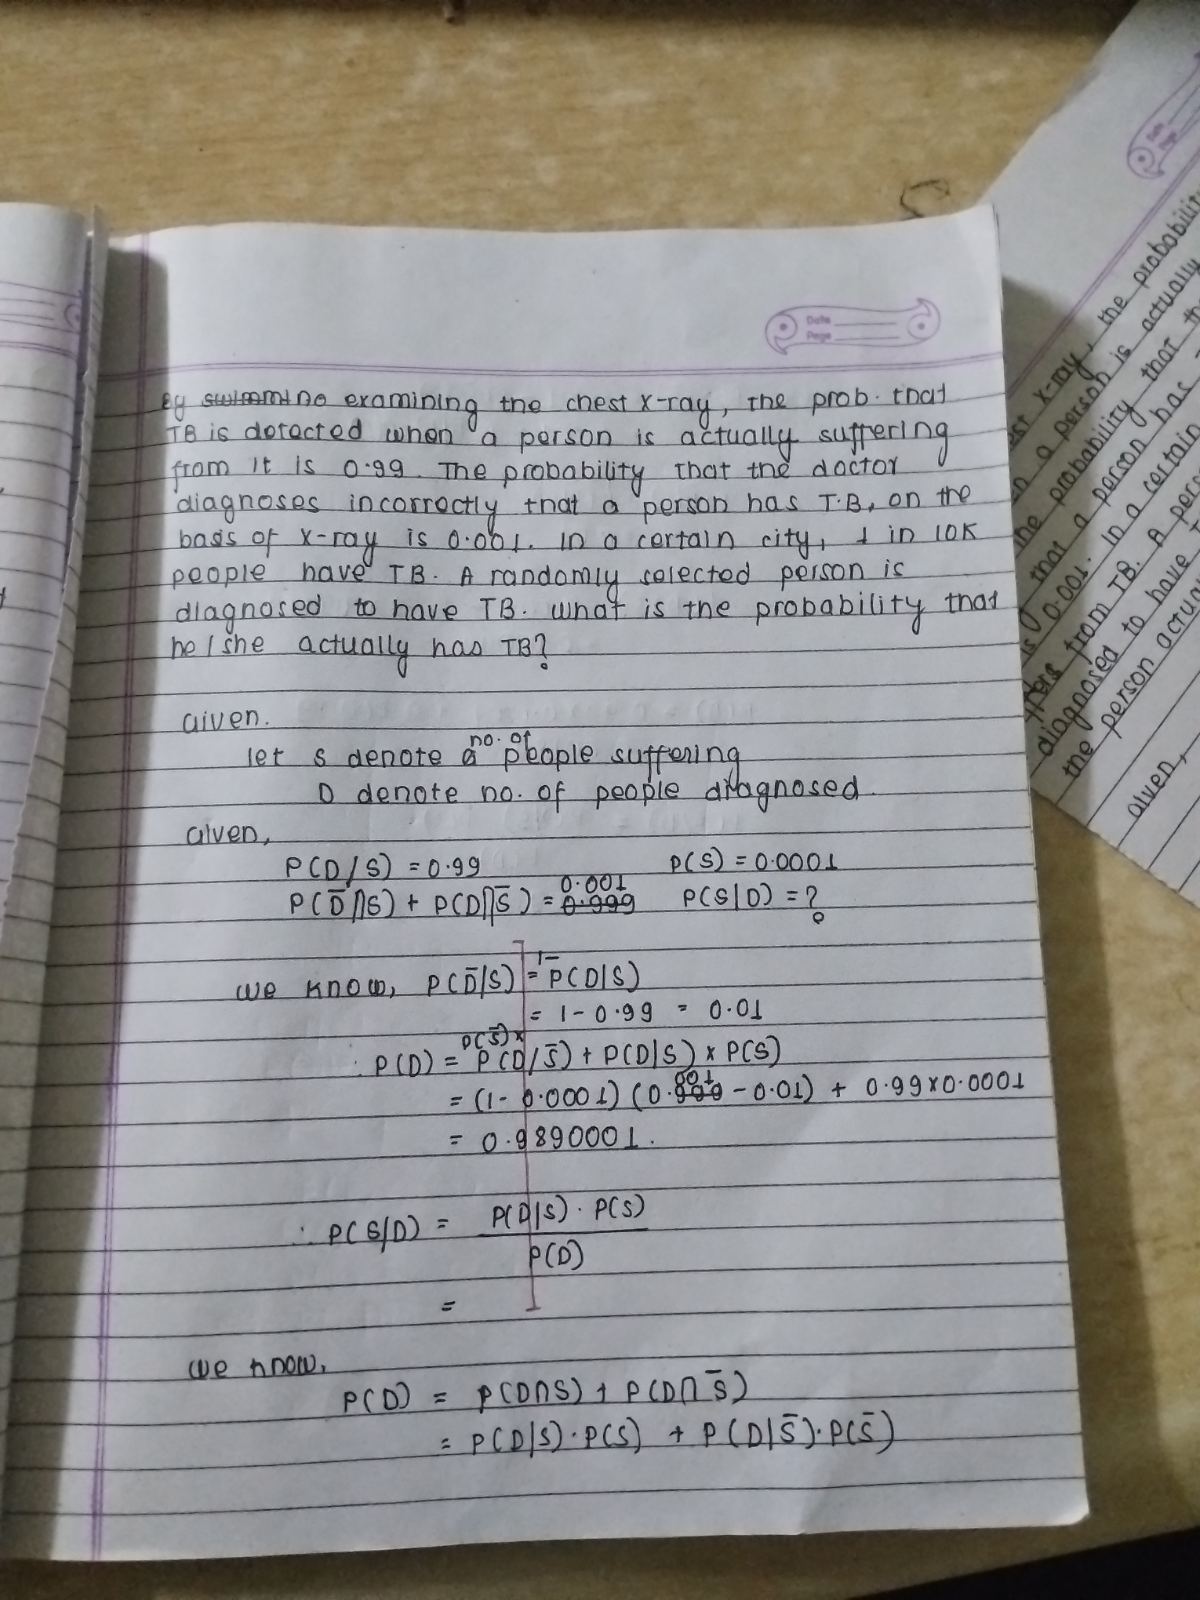 By swimmino examining the chest x-ray, the prob. that
TB is detected when a person is actually suffering
from it is 0.99. The probability that the doctor
diagnoses incorrectly that a person has T.B, on the
basis of x-ray is 0.001. In a certain city, 1 in 10K
people have TB. A randomly selected person is
diagnosed to have TB. What is the probability that
he/she actually has TB?
Given.
let S denote a no. of people suffering
D denote no. of people diagnosed.
Given,
P(D/S) = 0.99 P(S) = 0.0001
P(D̅∩S) + P(D∩S̅) = 0.999 0.001 P(S|D) = ?
We know, P(D̅|S) = 1- P(D|S)
= 1 - 0.99 = 0.01
∴ P(D) = P(S̅)× P(D/S̅) + P(D|S) × P(S)
= (1 - 0.0001) (0.999 001 - 0.01) + 0.99×0.0001
= 0.9890001.
∴ P(S/D) = P(D|S) · P(S)
P(D)
=
We know,
P(D) = P(D∩S) + P(D∩S̅)
= P(D|S)·P(S) + P(D|S̅)·P(S̅)
Date
Page
Date
Page
x-ray, the probability
a person is actually
the probability that
that a person has
is 0.001. In a certain
from TB. A
diagnosed to have
the person
Given,